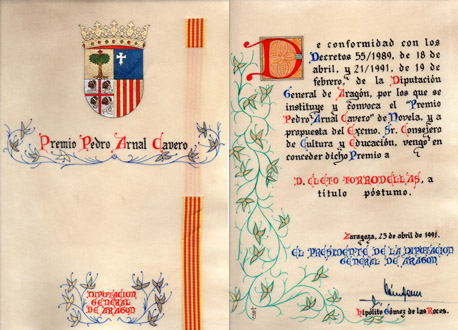 Premio Pedro Arnal Cavero
DIPUTACION
GENERAL
DE ARAGON
De conformidad con los
Decretos 55/1989, de 18 de
abril, y 21/1991, de 19 de
febrero, de la Diputación
General de Aragón, por los que se
instituye y convoca el "Premio
Pedro Arnal Cavero" de Novela, y a
propuesta del Excmo. Sr. Consejero
de Cultura y Educación, vengo en
conceder dicho Premio a
D. CLETO TORRODELLAS, a
título póstumo.
Zaragoza, 23 de abril de 1991.
EL PRESIDENTE DE LA DIPUTACION
GENERAL DE ARAGON
Hipólito Gómez de las Roces.